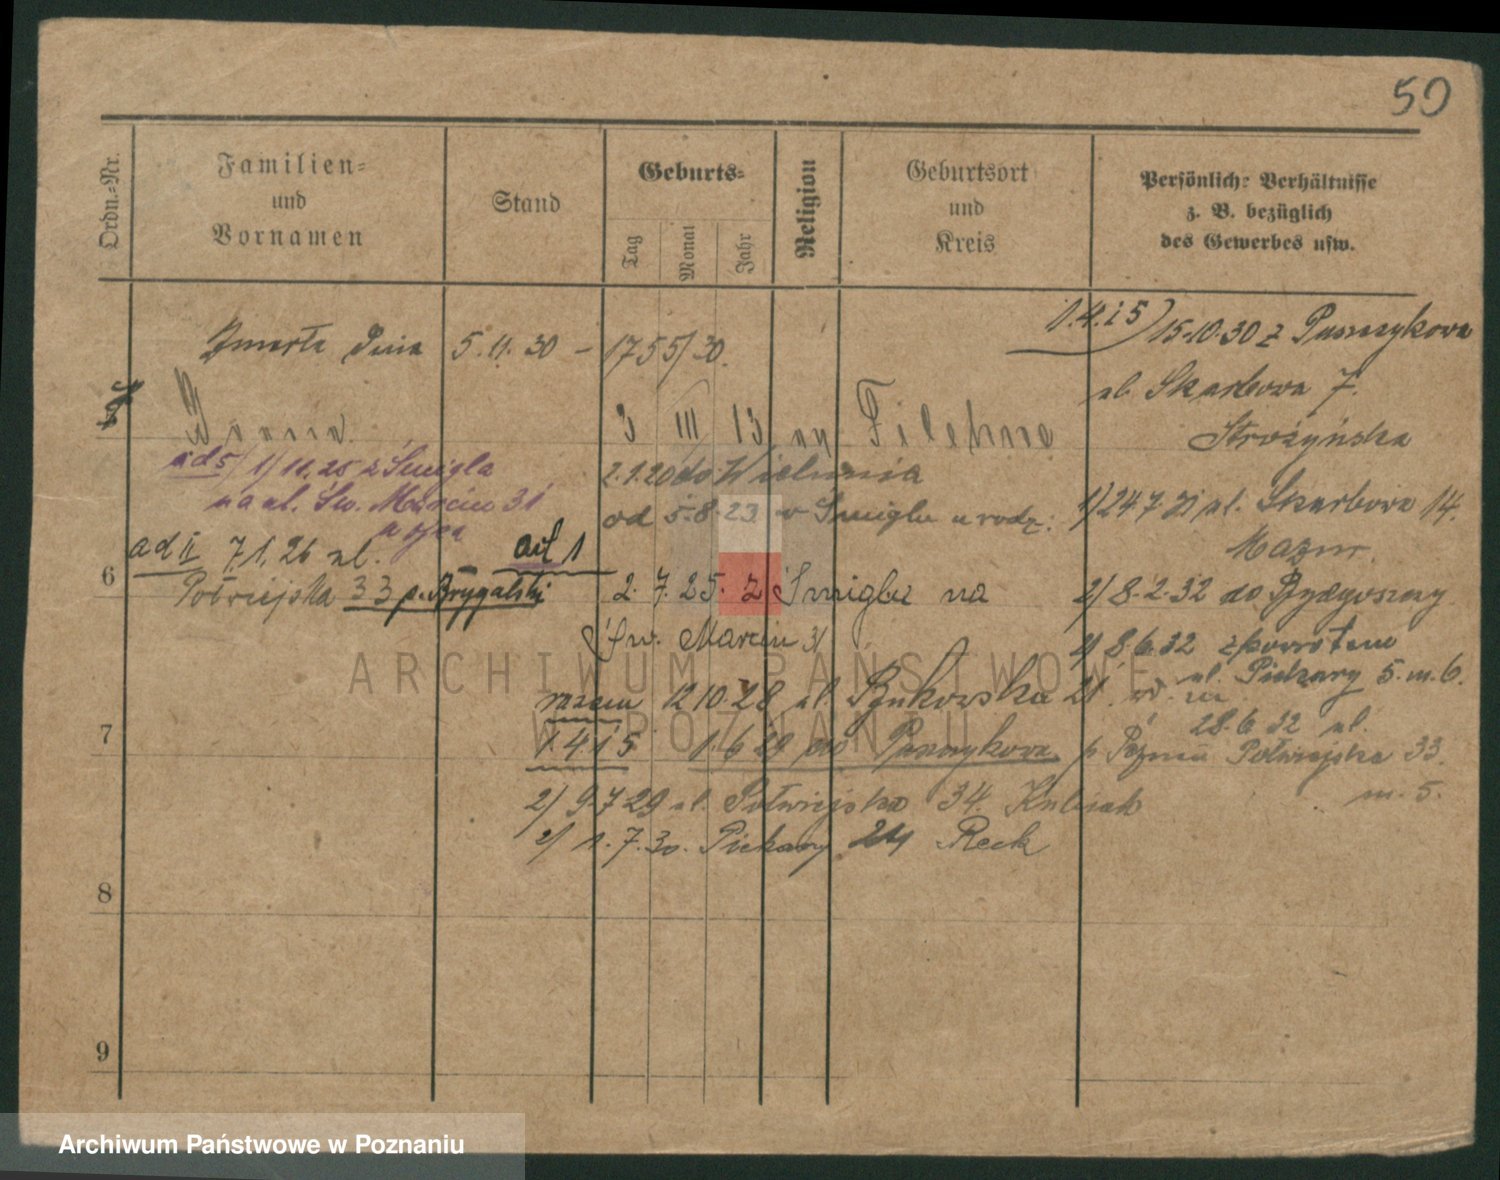 50
Ordn.=Nr.
Familien=
und
Vornamen
Stand
Geburts=
Tag
Monat
Jahr
Religion
Geburtsort
und
Kreis
Persönliche Verhältnisse
z. B. bezüglich
des Gewerbes usw.
Zmarła dnia 5.11.30 – 1755/30.
1.4.i 5) 15.10.30 z Puszczykowa
ul. Skarbowa 7.
Strożyńska
3 III 13 Filehne
ad 5/ 1) 11.25 z Śmigla
na ul. Św. Marcin 31
2.1.20 do Wielunia
od 5.8.23. w Śmiglu u rodz:
1) 24.7.31 ul. Skarbowa 14.
Mazur.
ad II 7.1.26 ul.
Półwiejska 33 p. Brygalski
ad 1
6
2.7.25. z Śmigla na
Św. Marcin 31
2) 8.2.32 do Bydgoszczy
2) 8.6.32 z powrotem
ul. Piekary 5. m. 6.
razem 12.10.28 ul. Bukowska 21.
28.6.32 ul.
7
1.4.i 5 1.6.29 do Puszczykowa p Poznań
Półwiejska 33.
m. 5.
2) 9.7.29 ul. Półwiejska 34. Kubiak
2) 1.7.30. Piekary 24 Reck
8
9
ARCHIWUM PAŃSTWOWE
W POZNANIU
Archiwum Państwowe w Poznaniu